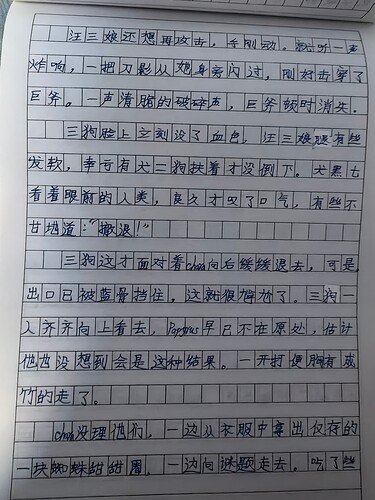 汪三娘还想再攻击，手刚动。就听一声
炸响，一把刀影从她身旁闪过，刚好击穿了
巨斧。一声清脆的破碎声，巨斧顿时消失。
三狗脸上立刻没了血色，汪三娘腿有些
发软，幸亏有犬二狗扶着才没倒下。犬黑七
看着眼前的人类，良久才叹了口气，有些不
甘地道：“撤退！”
三狗这才面对着Chara向后缓缓退去，可是，
出口已被蓝骨挡住，这就很尴尬了。三狗一
人齐齐向上看去，Papyrus早已不在原处，估计
他也没想到会是这种结果。一开打便胸有成
竹的走了。
Chara没理他们，一边从衣服中拿出仅存的
一块蜘蛛甜甜圈，一边向谜题走去。吃了些